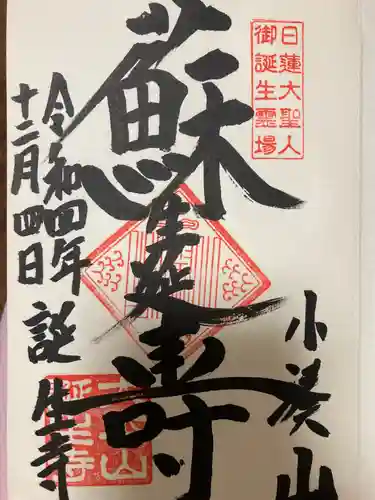 日蓮大聖人
御誕生霊場
小湊山
蘇生延寿
令和四年
十二月四日
誕生寺